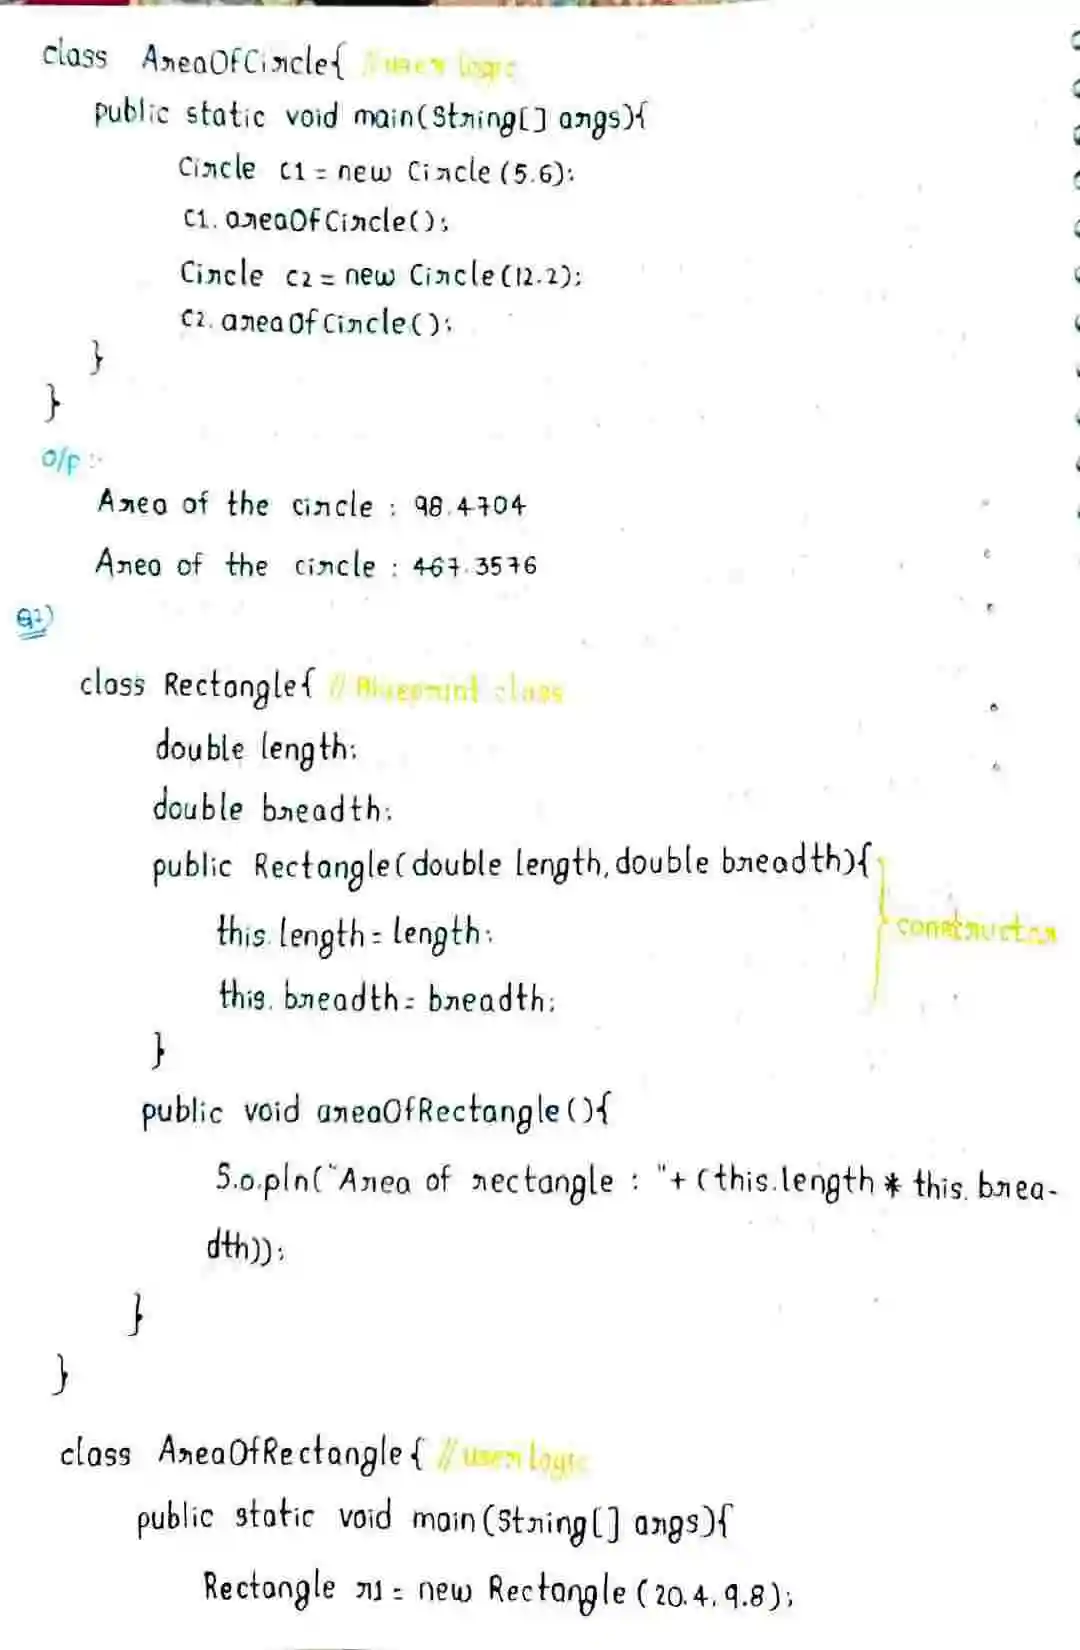 class AreaOfCircle{ //user logic
public static void main(String[] args){
Circle c1 = new Circle (5.6);
c1.areaOfCircle();
Circle c2 = new Circle(12.2);
c2.areaOfCircle();
}
}
O/P :-
Area of the circle : 98.4704
Area of the circle : 467.3576
Q2)
class Rectangle{ // Blueprint class
double length;
double breadth;
public Rectangle(double length, double breadth){
constructor
this.length = length;
this.breadth = breadth;
}
public void areaOfRectangle(){
S.o.pln("Area of rectangle : "+ (this.length * this.brea-
dth));
}
}
class AreaOfRectangle{ //user logic
public static void main(String[] args){
Rectangle r1 = new Rectangle (20.4, 9.8);